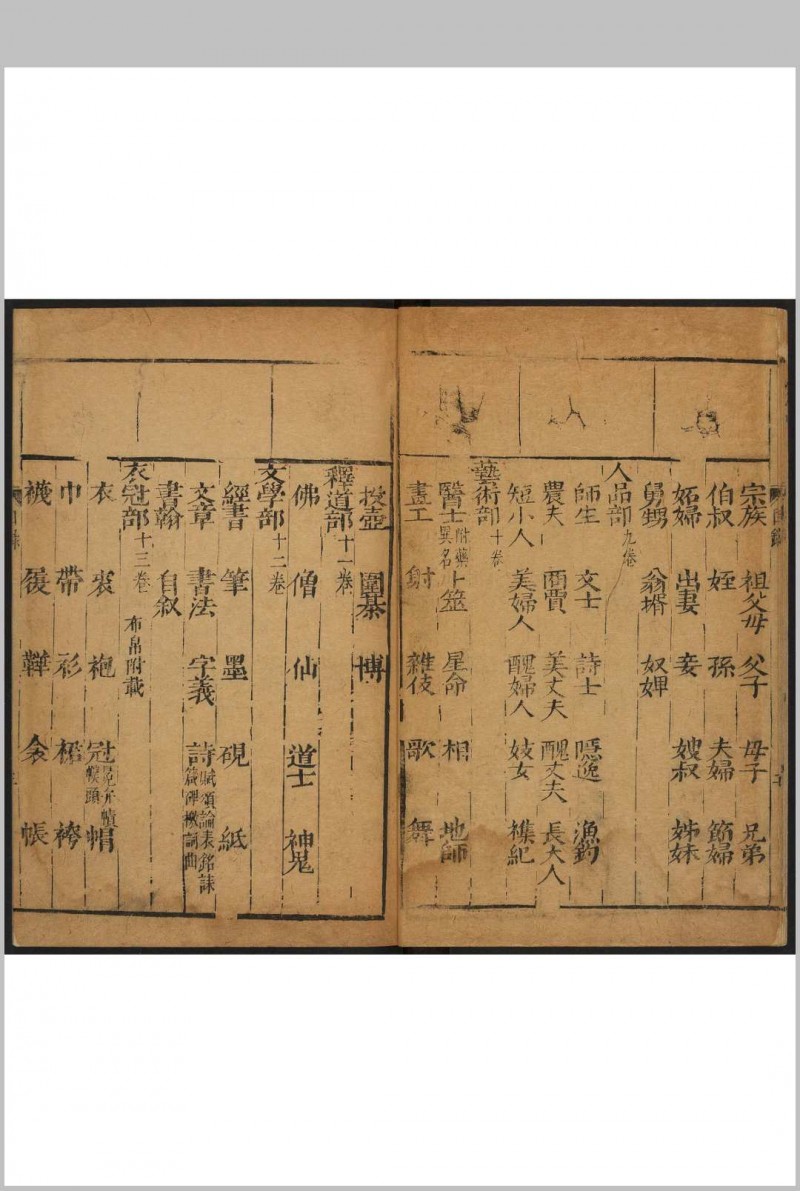 宗族 祖父母 父子 母子 兄弟
伯叔 姪 孫 夫婦 節婦
妬婦 出妻 妾 嫂叔 姊妹
舅甥 翁壻 奴婢
人品部 九卷
師生 文士 詩士 隱逸 漁釣
農夫 商賈 美丈夫 醜丈夫 長大人
短小人 美婦人 醜婦人 妓女 襍紀
藝術部 十卷
醫士 附藥異名 卜筮 星命 相 地師
畫工 射 雜伎 歌 舞
投壺 圍棊 博
釋道部 十一卷
佛 僧 仙 道士 神鬼
文學部 十二卷
經書 筆 墨 硯 紙
文章 書法 字義 詩 賦頌論表銘誄箴碑檄詞曲
書翰 自叙
衣冠部 十三卷 布帛附載
衣 裘 袍 冠 帽
巾 帶 衫 裙 袴
襪 履 衾 帳